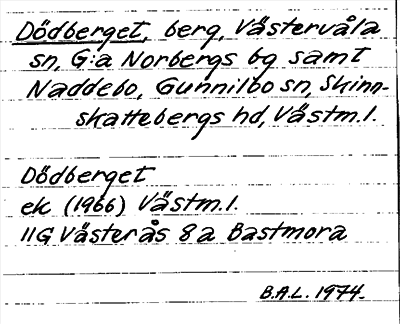 Dödberget, berg, Västervåla
sn, G:a Norbergs bg samt
Naddebo, Gunnilbo sn, Skinn-
skattebergs hd, Västm.l.
Dödberget
ek (1966) Västm.l.
11G Västerås 8a Bastmora
B.A.L. 1974.